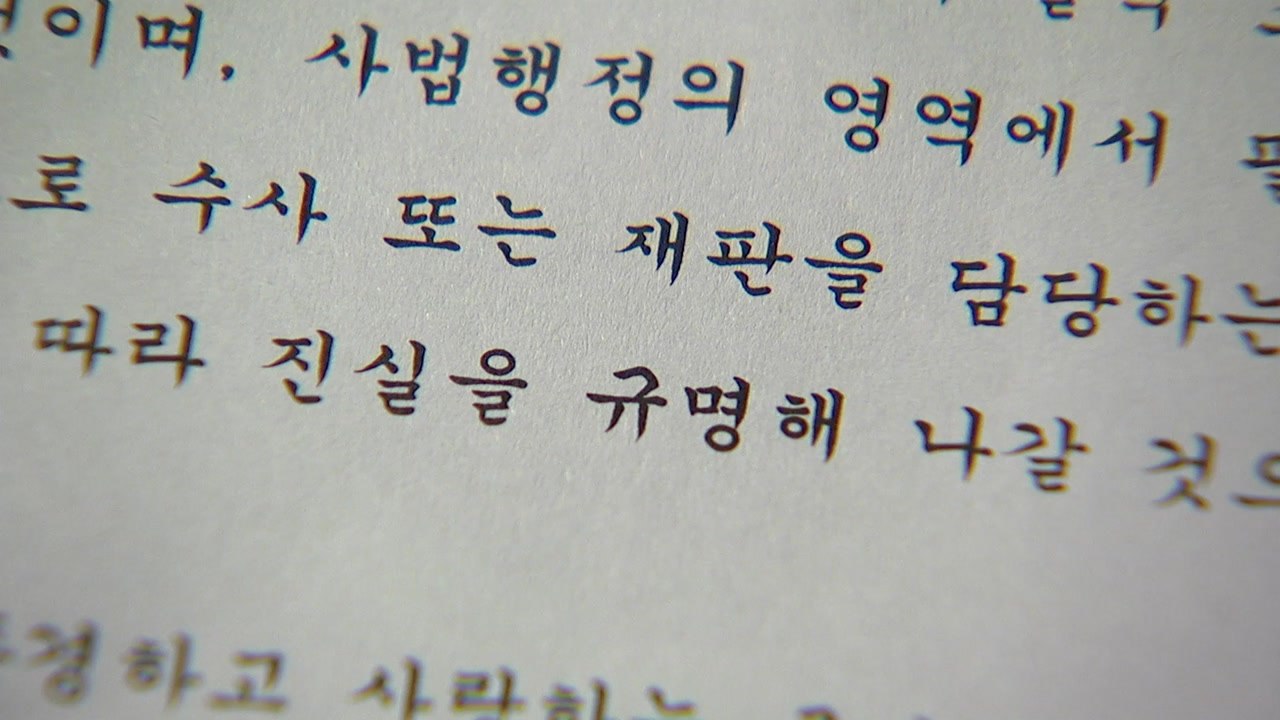 것이며, 사법행정의 영역에서 필
로 수사 또는 재판을 담당하는
따라 진실을 규명해 나갈 것으
존경하고 사랑하는